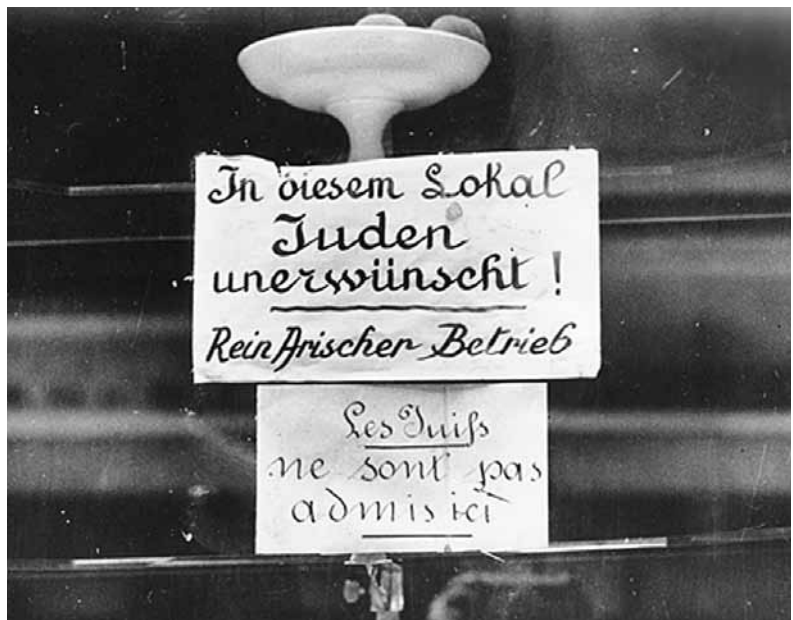 In diesem Lokal
Juden
unerwünscht!
Rein Arischer Betrieb
Les Juifs
ne sont pas
admis ici